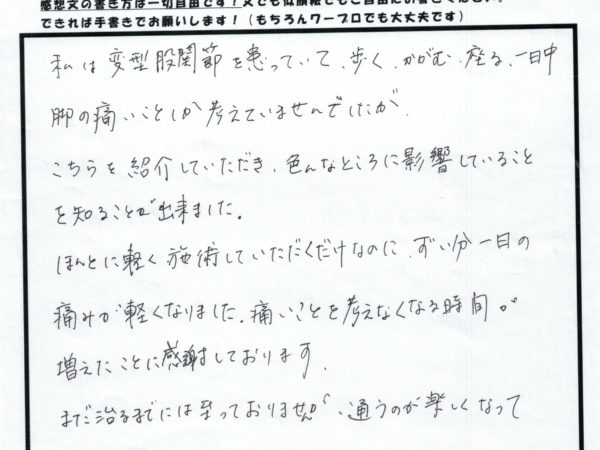 感想文の書き方は一切自由です！文でも似顔絵でもご自由にお書きください。
できれば手書きでお願いします！（もちろんワープロでも大丈夫です）
私は変型股関節を患っていて、歩く、かがむ、座る、一日中
脚の痛いことしか考えていませんでしたが、
こちらを紹介していただき、色んなところに影響していること
を知ることが出来ました。
ほんとに軽く施術していただくだけなのに、ずい分一日の
痛みが軽くなりました。痛いことを考えなくなる時間が
増えたことに感謝しております。
まだ治るまでには至っておりませんが、通うのが楽しくなって